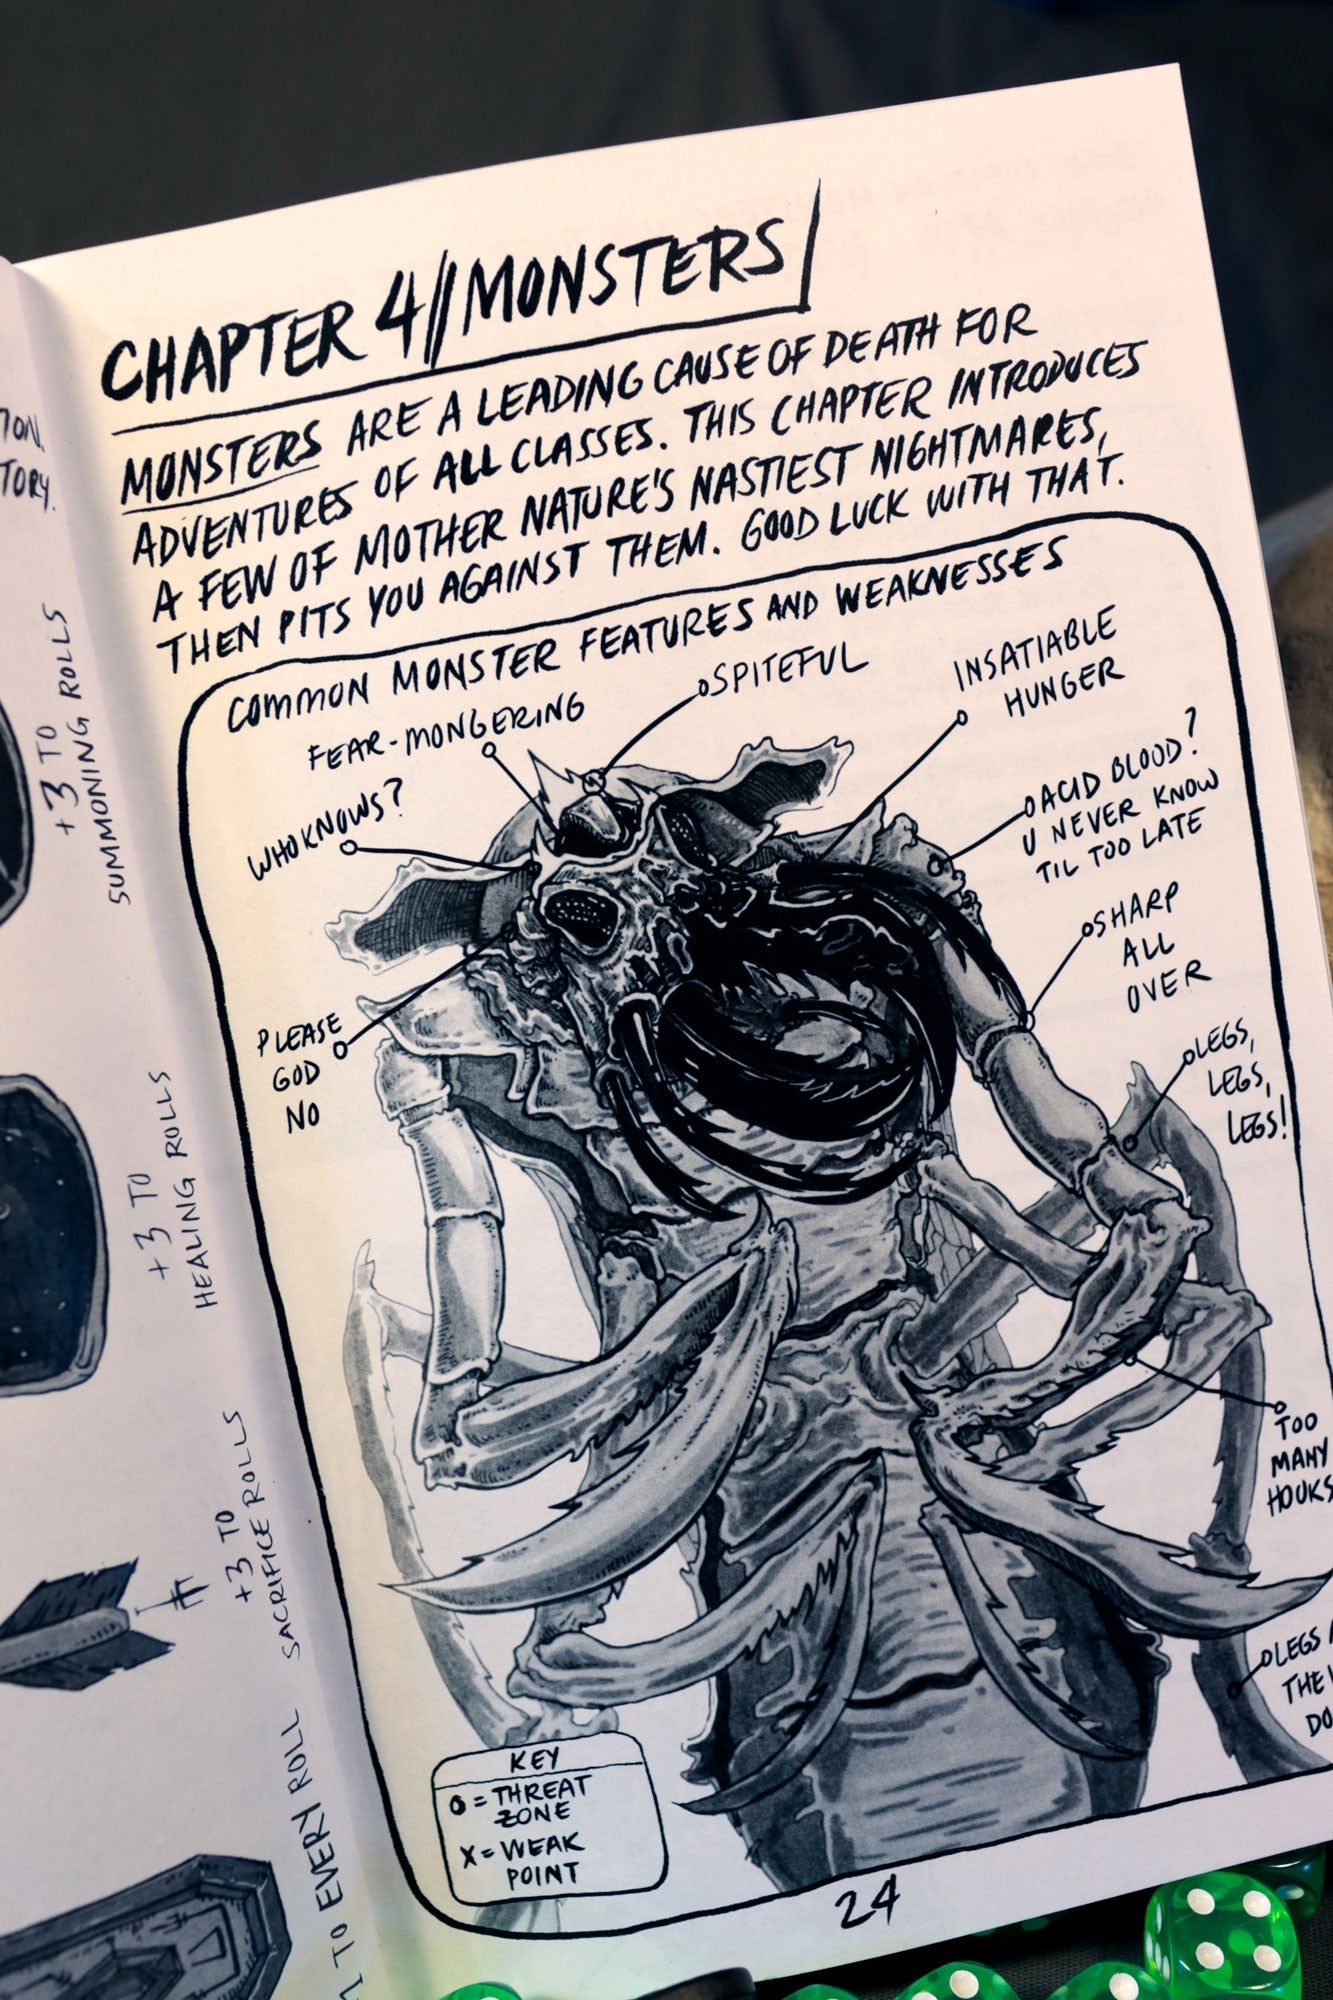 CHAPTER 4//MONSTERS
MONSTERS ARE A LEADING CAUSE OF DEATH FOR
ADVENTURES OF ALL CLASSES. THIS CHAPTER INTRODUCES
A FEW OF MOTHER NATURE'S NASTIEST NIGHTMARES,
THEN PITS YOU AGAINST THEM. GOOD LUCK WITH THAT.
COMMON MONSTER FEATURES AND WEAKNESSES
FEAR-MONGERING
SPITEFUL
INSATIABLE
HUNGER
WHO KNOWS?
ACID BLOOD?
U NEVER KNOW
TIL TOO LATE
SHARP
ALL
OVER
PLEASE
GOD
NO
LEGS,
LEGS,
LEGS!
TOO
MANY
HOOKS
LEGS
THE
DO
KEY
O = THREAT
ZONE
X = WEAK
POINT
24
TORY.
+3 TO
SUMMONING ROLLS
+3 TO
HEALING ROLLS
+3 TO
SACRIFICE ROLLS
1 TO EVERY ROLL